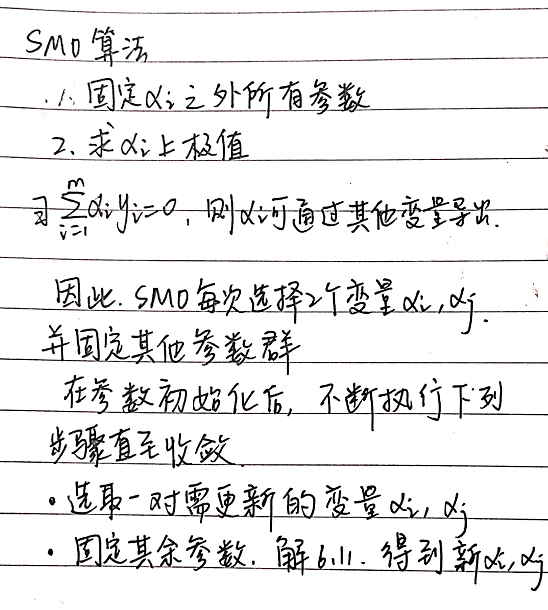 SMO 算法
1. 固定αi之外所有参数
2. 求αi上极值
∃ ∑_{i=1}^{m} αiyi=0, 则αi可通过其他变量导出.
因此. SMO每次选择2个变量αi, αj.
并固定其他参数群
在参数初始化后, 不断执行下列
步骤直至收敛.
• 选取一对需更新的变量αi, αj
• 固定其余参数. 解6.11. 得到新αi, αj